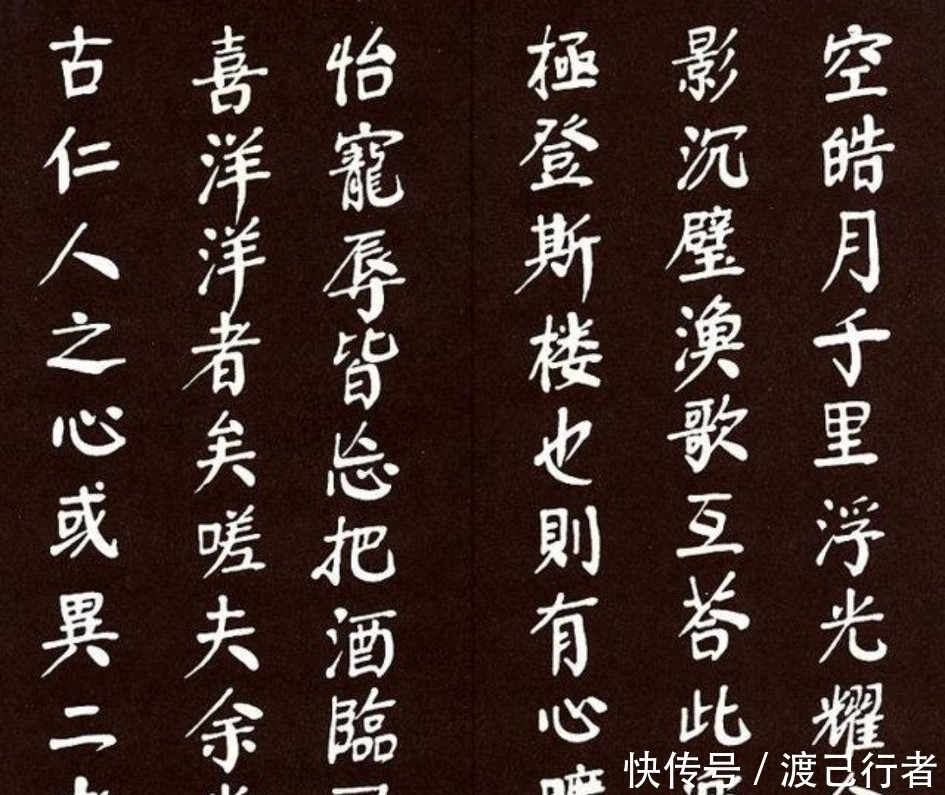 空皓月千里浮光耀
影沉璧渔歌互荅此
極登斯楼也則有心
怡寵辱皆忘把酒臨
喜洋洋者矣嗟夫余
古仁人之心或異二
快传号 / 渡己行者